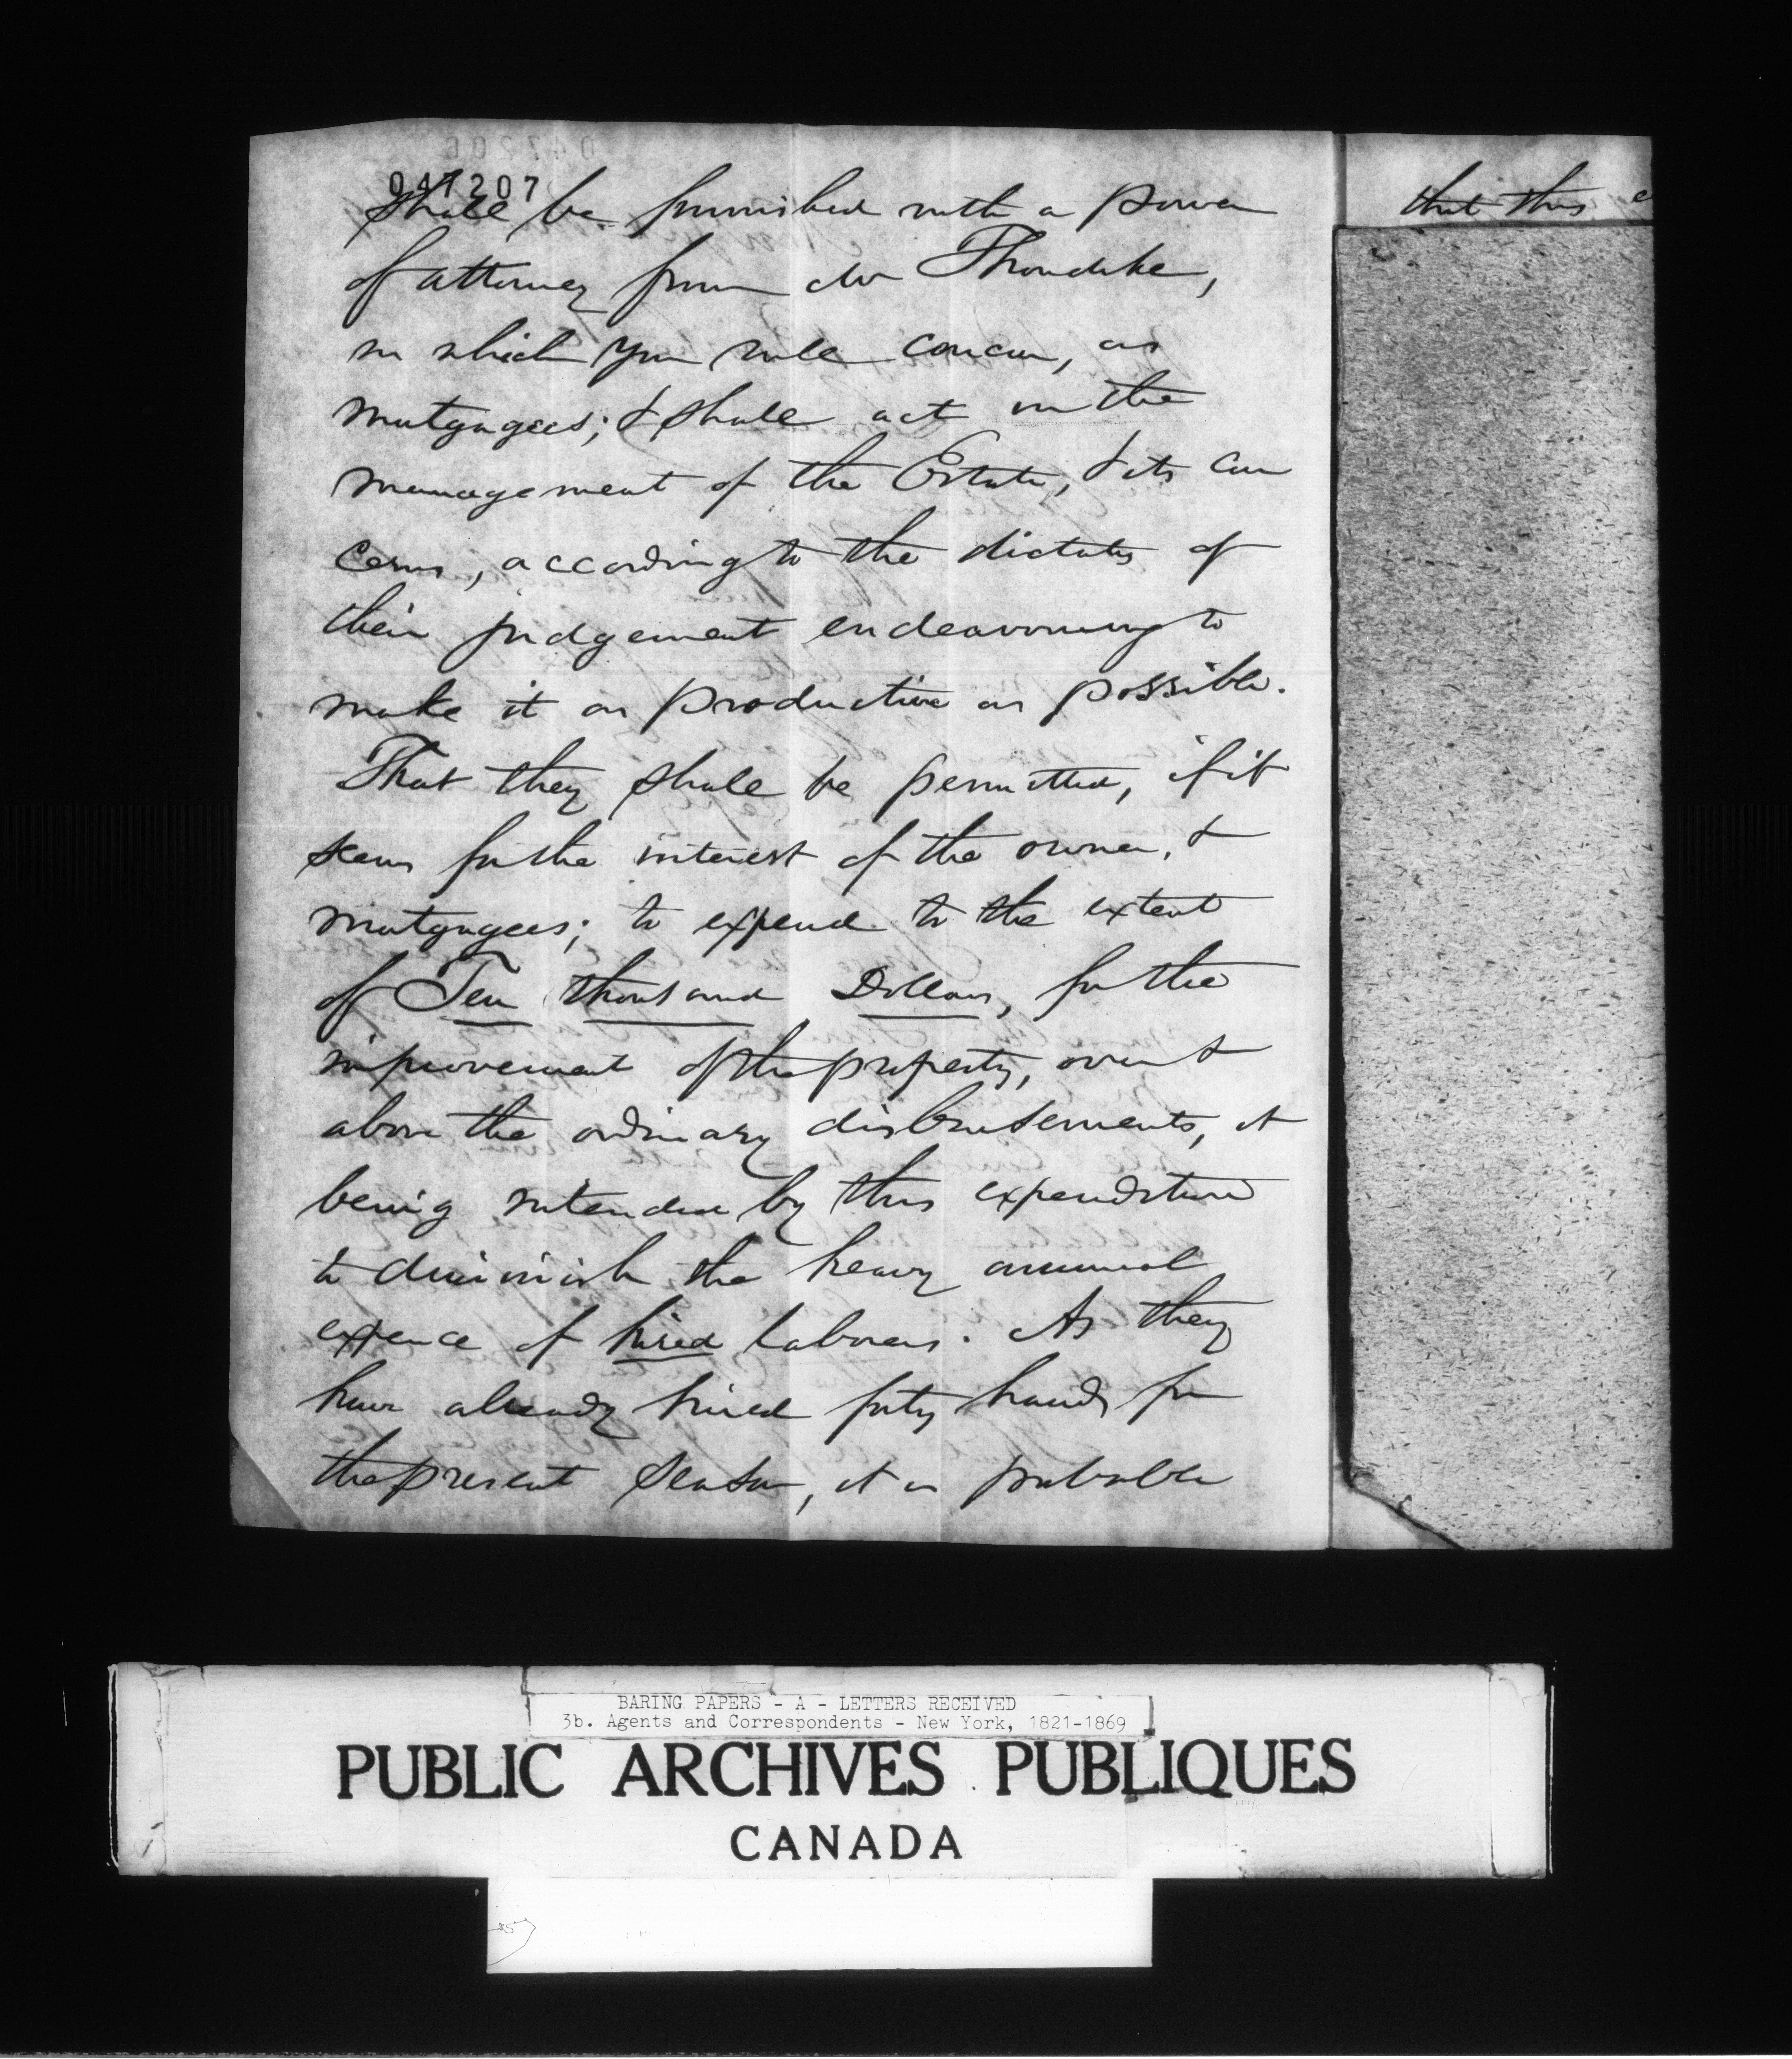 047207
shall be furnished with a power
of attorney from Mr Thorndike,
in which you will concur, as
mortgagees; & shall act in the
management of the Estate, & its con
cerns, according to the dictates of
their judgement endeavouring to
make it as productive as possible.
That they shall be permitted, if it
seems for the interest of the owner, &
mortgagees; to expend to the extent
of Ten thousand Dollars, for the
improvement of the property, over &
above the ordinary disbursements, it
being intended by this expenditure
to diminish the heavy annual
expence of hired laborers. As they
have already hired forty hands for
the present season, it is probable
that this
BARING PAPERS - A - LETTERS RECEIVED
3b. Agents and Correspondents - New York, 1821-1869
PUBLIC ARCHIVES PUBLIQUES
CANADA